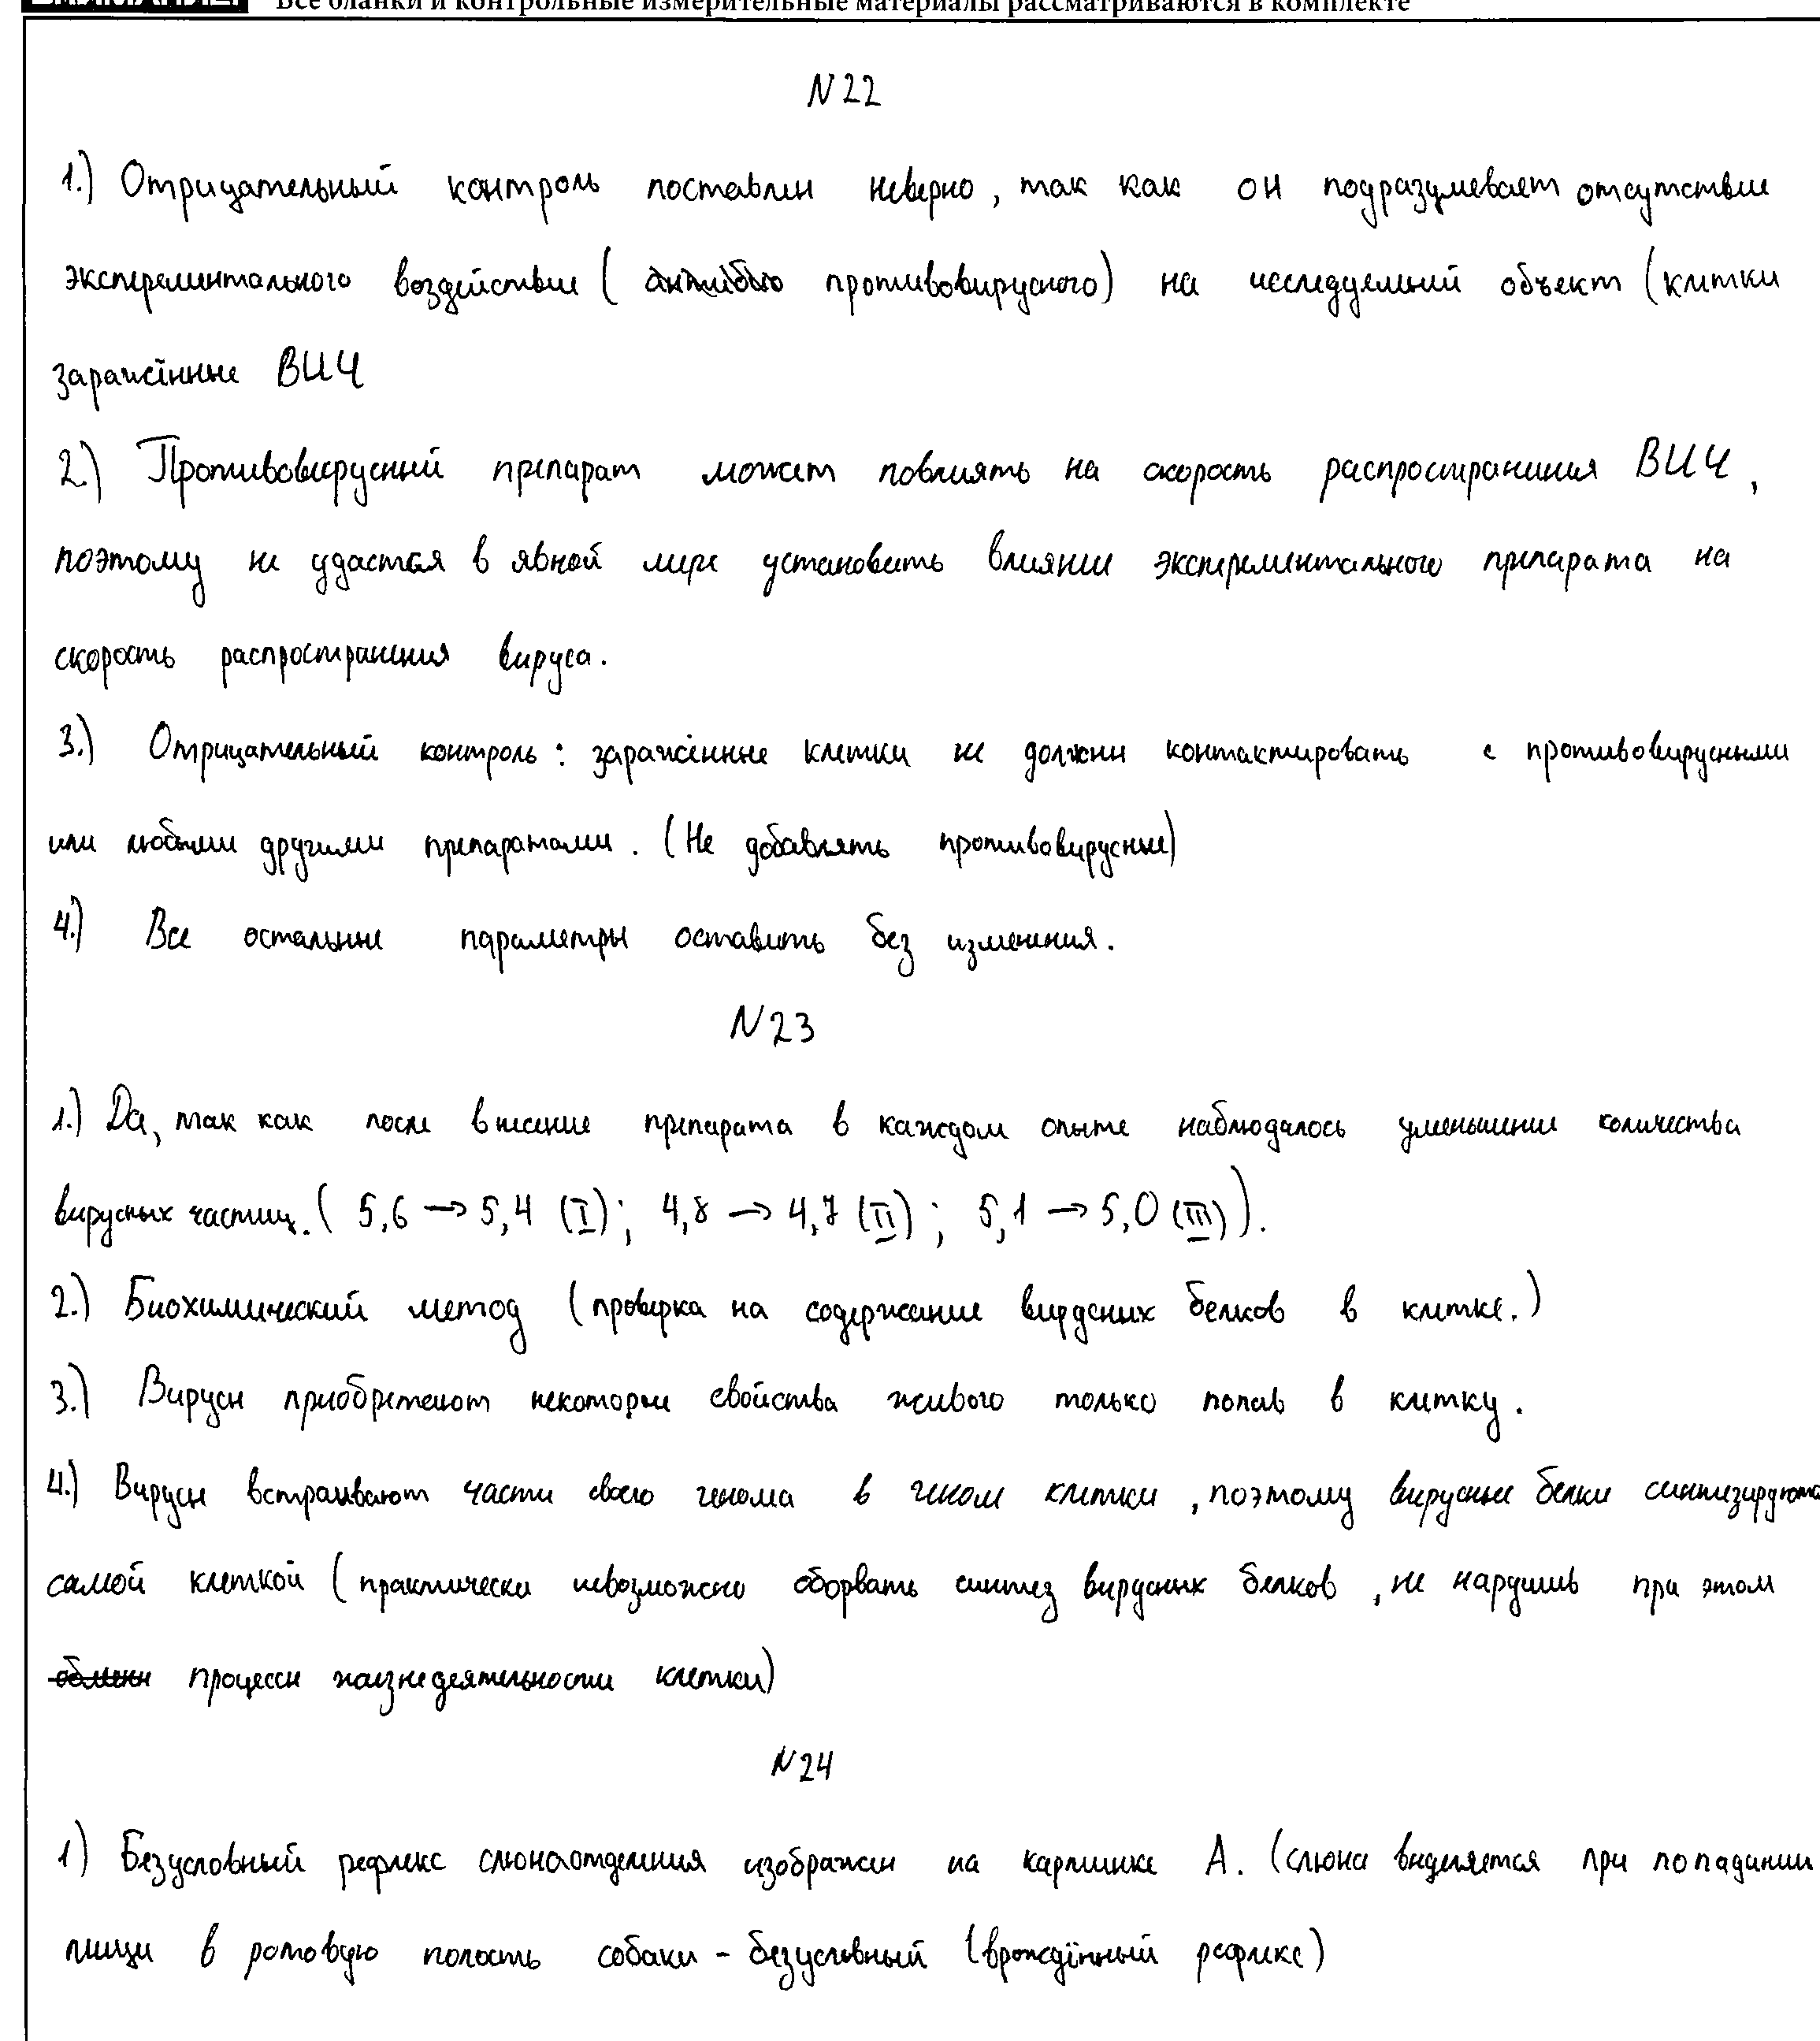 Все бланки и контрольные измерительные материалы рассматриваются в комплекте
N22
1.) Отрицательный контроль поставлен неверно, так как он подразумевает отсутствие
экспериментального воздействие ( противовирусного) на исследуемый объект (клетки
заражённые ВИЧ
2.) Противовирусный препарат может повлиять на скорость распространения ВИЧ,
поэтому не удастся в явной мере установить влияние экспериментального препарата на
скорость распространения вируса.
3.) Отрицательный контроль: заражённые клетки не должны контактировать с противовирусными
или любыми другими препаратами. (Не добавлять противовирусные)
4.) Все остальные параметры оставить без изменения.
N23
1.) Да, так как после внесение препарата в каждом опыте наблюдалось уменьшение количества
вирусных частиц. ( 5,6 → 5,4 (I); 4,8 → 4,7 (II); 5,1 → 5,0 (III)).
2.) Биохимический метод (проверка на содержание вирусных белков в клетке.)
3.) Вирусы приобретают некоторые свойства живого только попав в клетку.
4.) Вирусы встраивают части своего генома в геном клетки, поэтому вирусные белки синтезируются
самой клеткой (практически невозможно оборвать синтез вирусных белков, не нарушив при этом
обмены процессы жизнедеятельности клетки)
N24
1) Безусловный рефлекс слюноотделения изображен на картинке А. (слюна выделяется при попадании
пищи в ротовую полость собаки - безусловный (врождённый рефлекс)